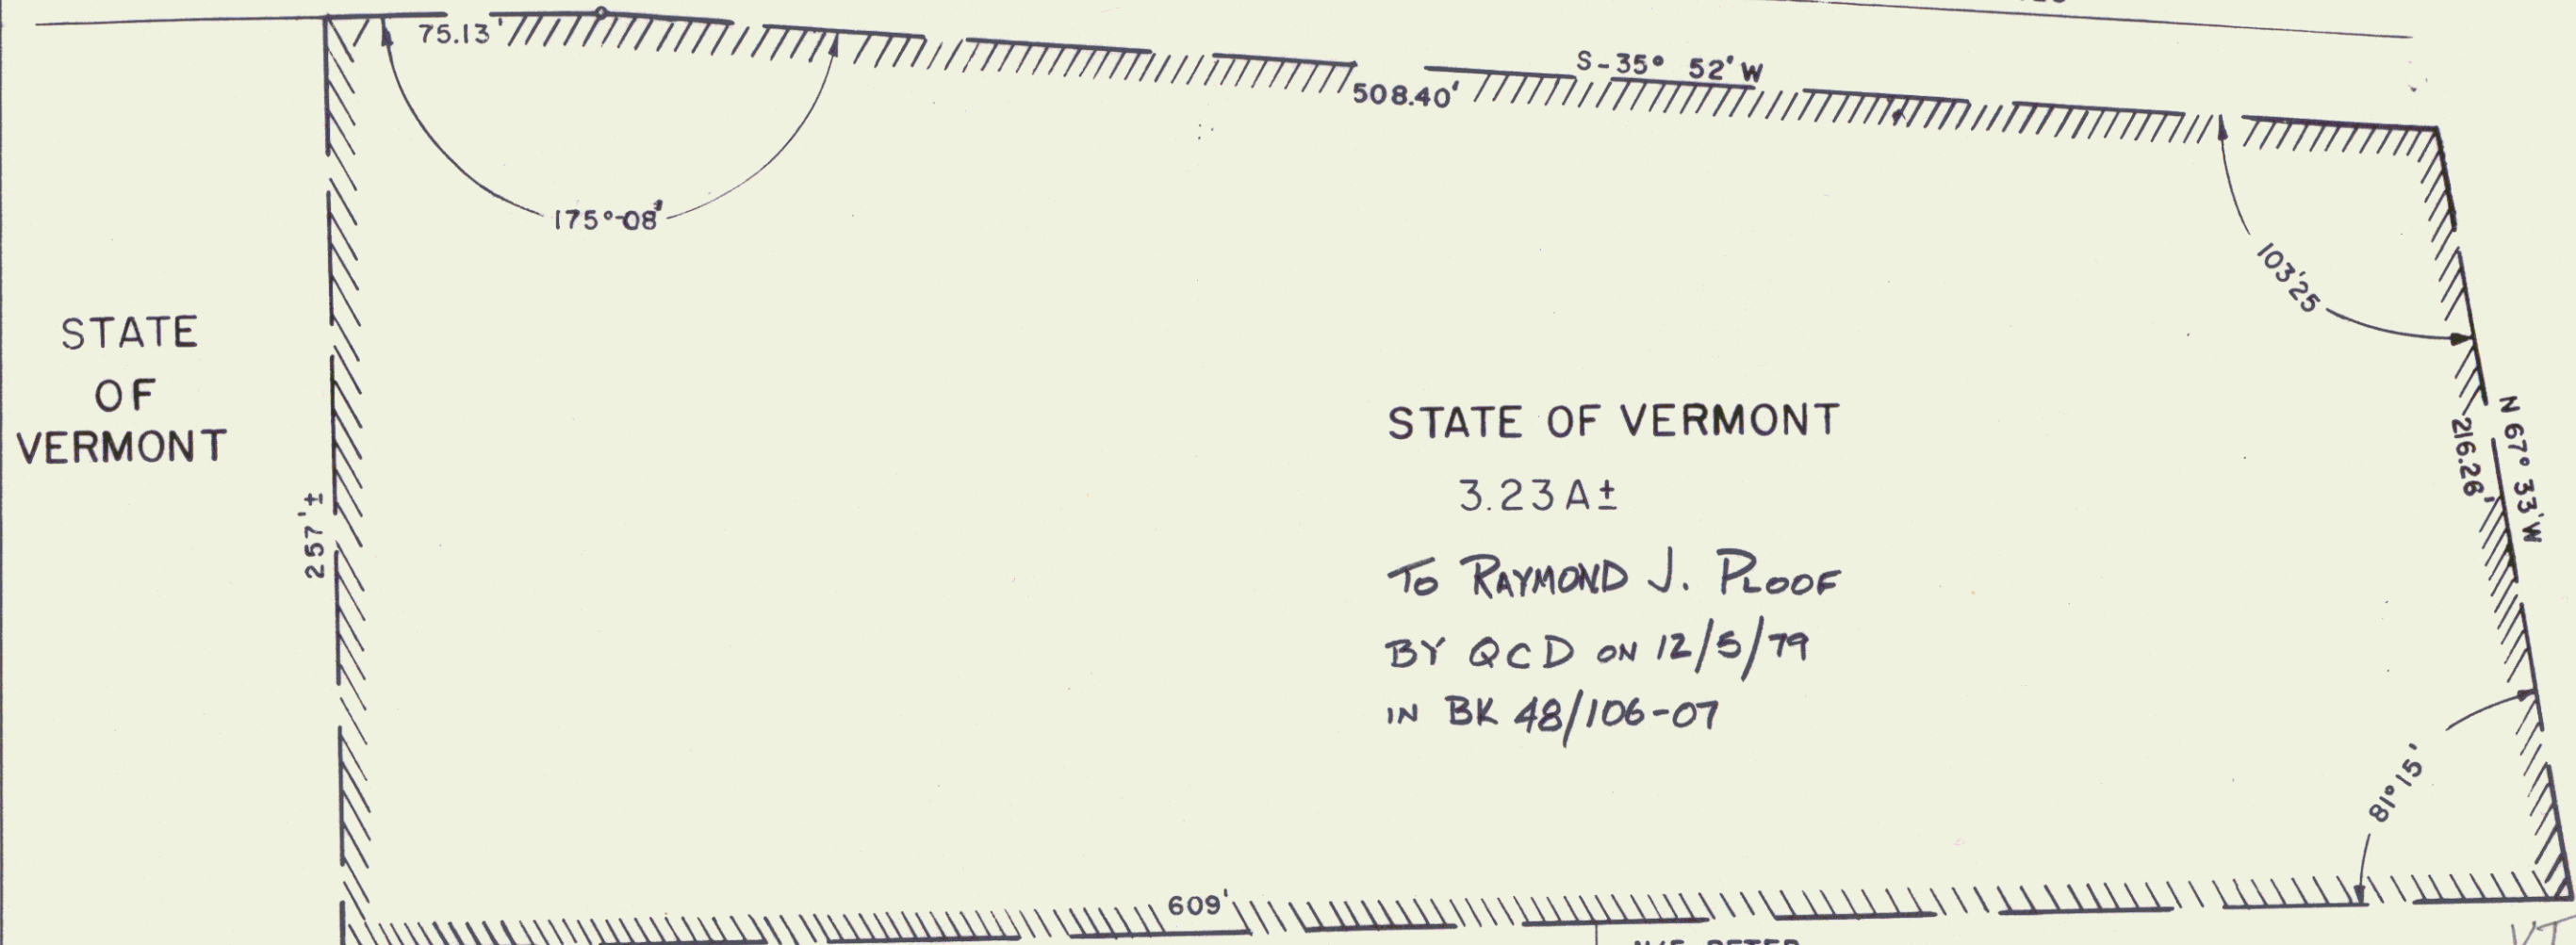 75.13'
S-35° 52' W
508.40'
175°-08'
103'25
STATE
OF
VERMONT
257'±
STATE OF VERMONT
3.23 A ±
TO RAYMOND J. PLOOF
BY QCD ON 12/5/79
IN BK 48/106-07
N 67° 33' W
216.26'
81° 15'
609'
VT